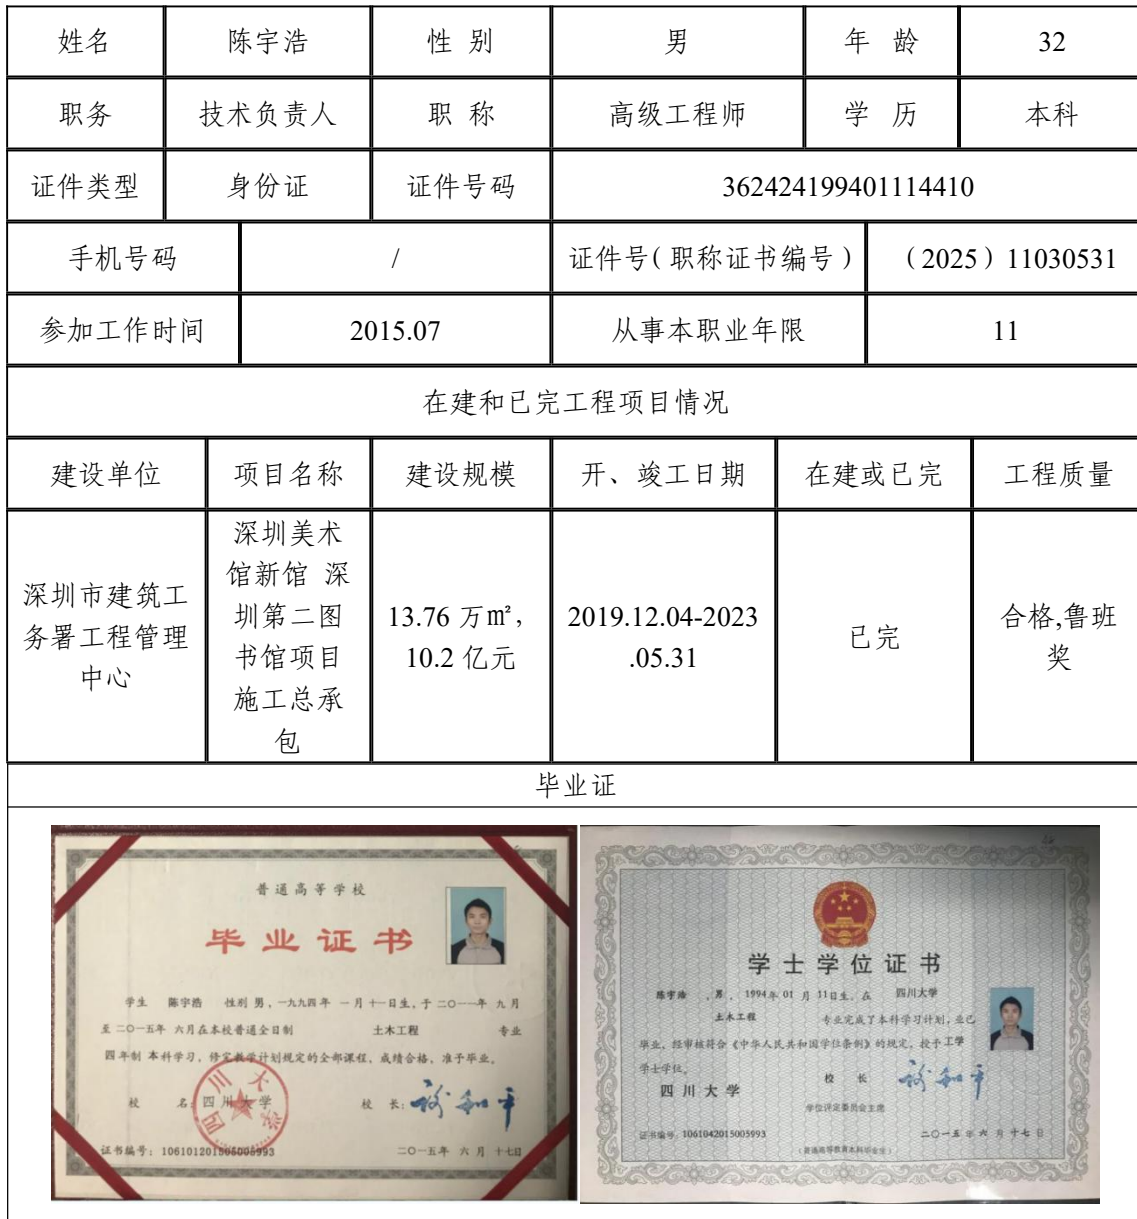 姓名 陈宇浩 性 别 男 年 龄 32
职务 技术负责人 职 称 高级工程师 学 历 本科
证件类型 身份证 证件号码 362424199401114410
手机号码 / 证件号(职称证书编号) （2025）11030531
参加工作时间 2015.07 从事本职业年限 11
在建和已完工程项目情况
建设单位 项目名称 建设规模 开、竣工日期 在建或已完 工程质量
深圳市建筑工
务署工程管理
中心
深圳美术
馆新馆 深
圳第二图
书馆项目
施工总承
包
13.76 万㎡,
10.2 亿元
2019.12.04-2023
.05.31
已完
合格,鲁班
奖
毕业证
普通高等学校
毕业证书
学生 陈宇浩 性别 男，一九九四年 一月 十一日生，于 二〇一一年 九月
至 二〇一五年 六月在本校普通全日制 土木工程 专业
四年制 本科学习，修完教学计划规定的全部课程、成绩合格，准予毕业。
校 名：四川大学 校 长：谢和平
四川大学
证书编号：106101201505005993 二〇一五年 六月 十七日
学士学位证书
陈宇浩 ，男，1994年 01 月 11日生。在 四川大学
土木工程 专业完成了本科学习计划，业已
毕业，经审核符合《中华人民共和国学位条例》的规定，授予工学
学士学位。
四川大学 校 长 谢和平
学位评定委员会主席
证书编号：1061042015005993 二〇一五年 六月 十七日
（普通高等教育本科毕业生）